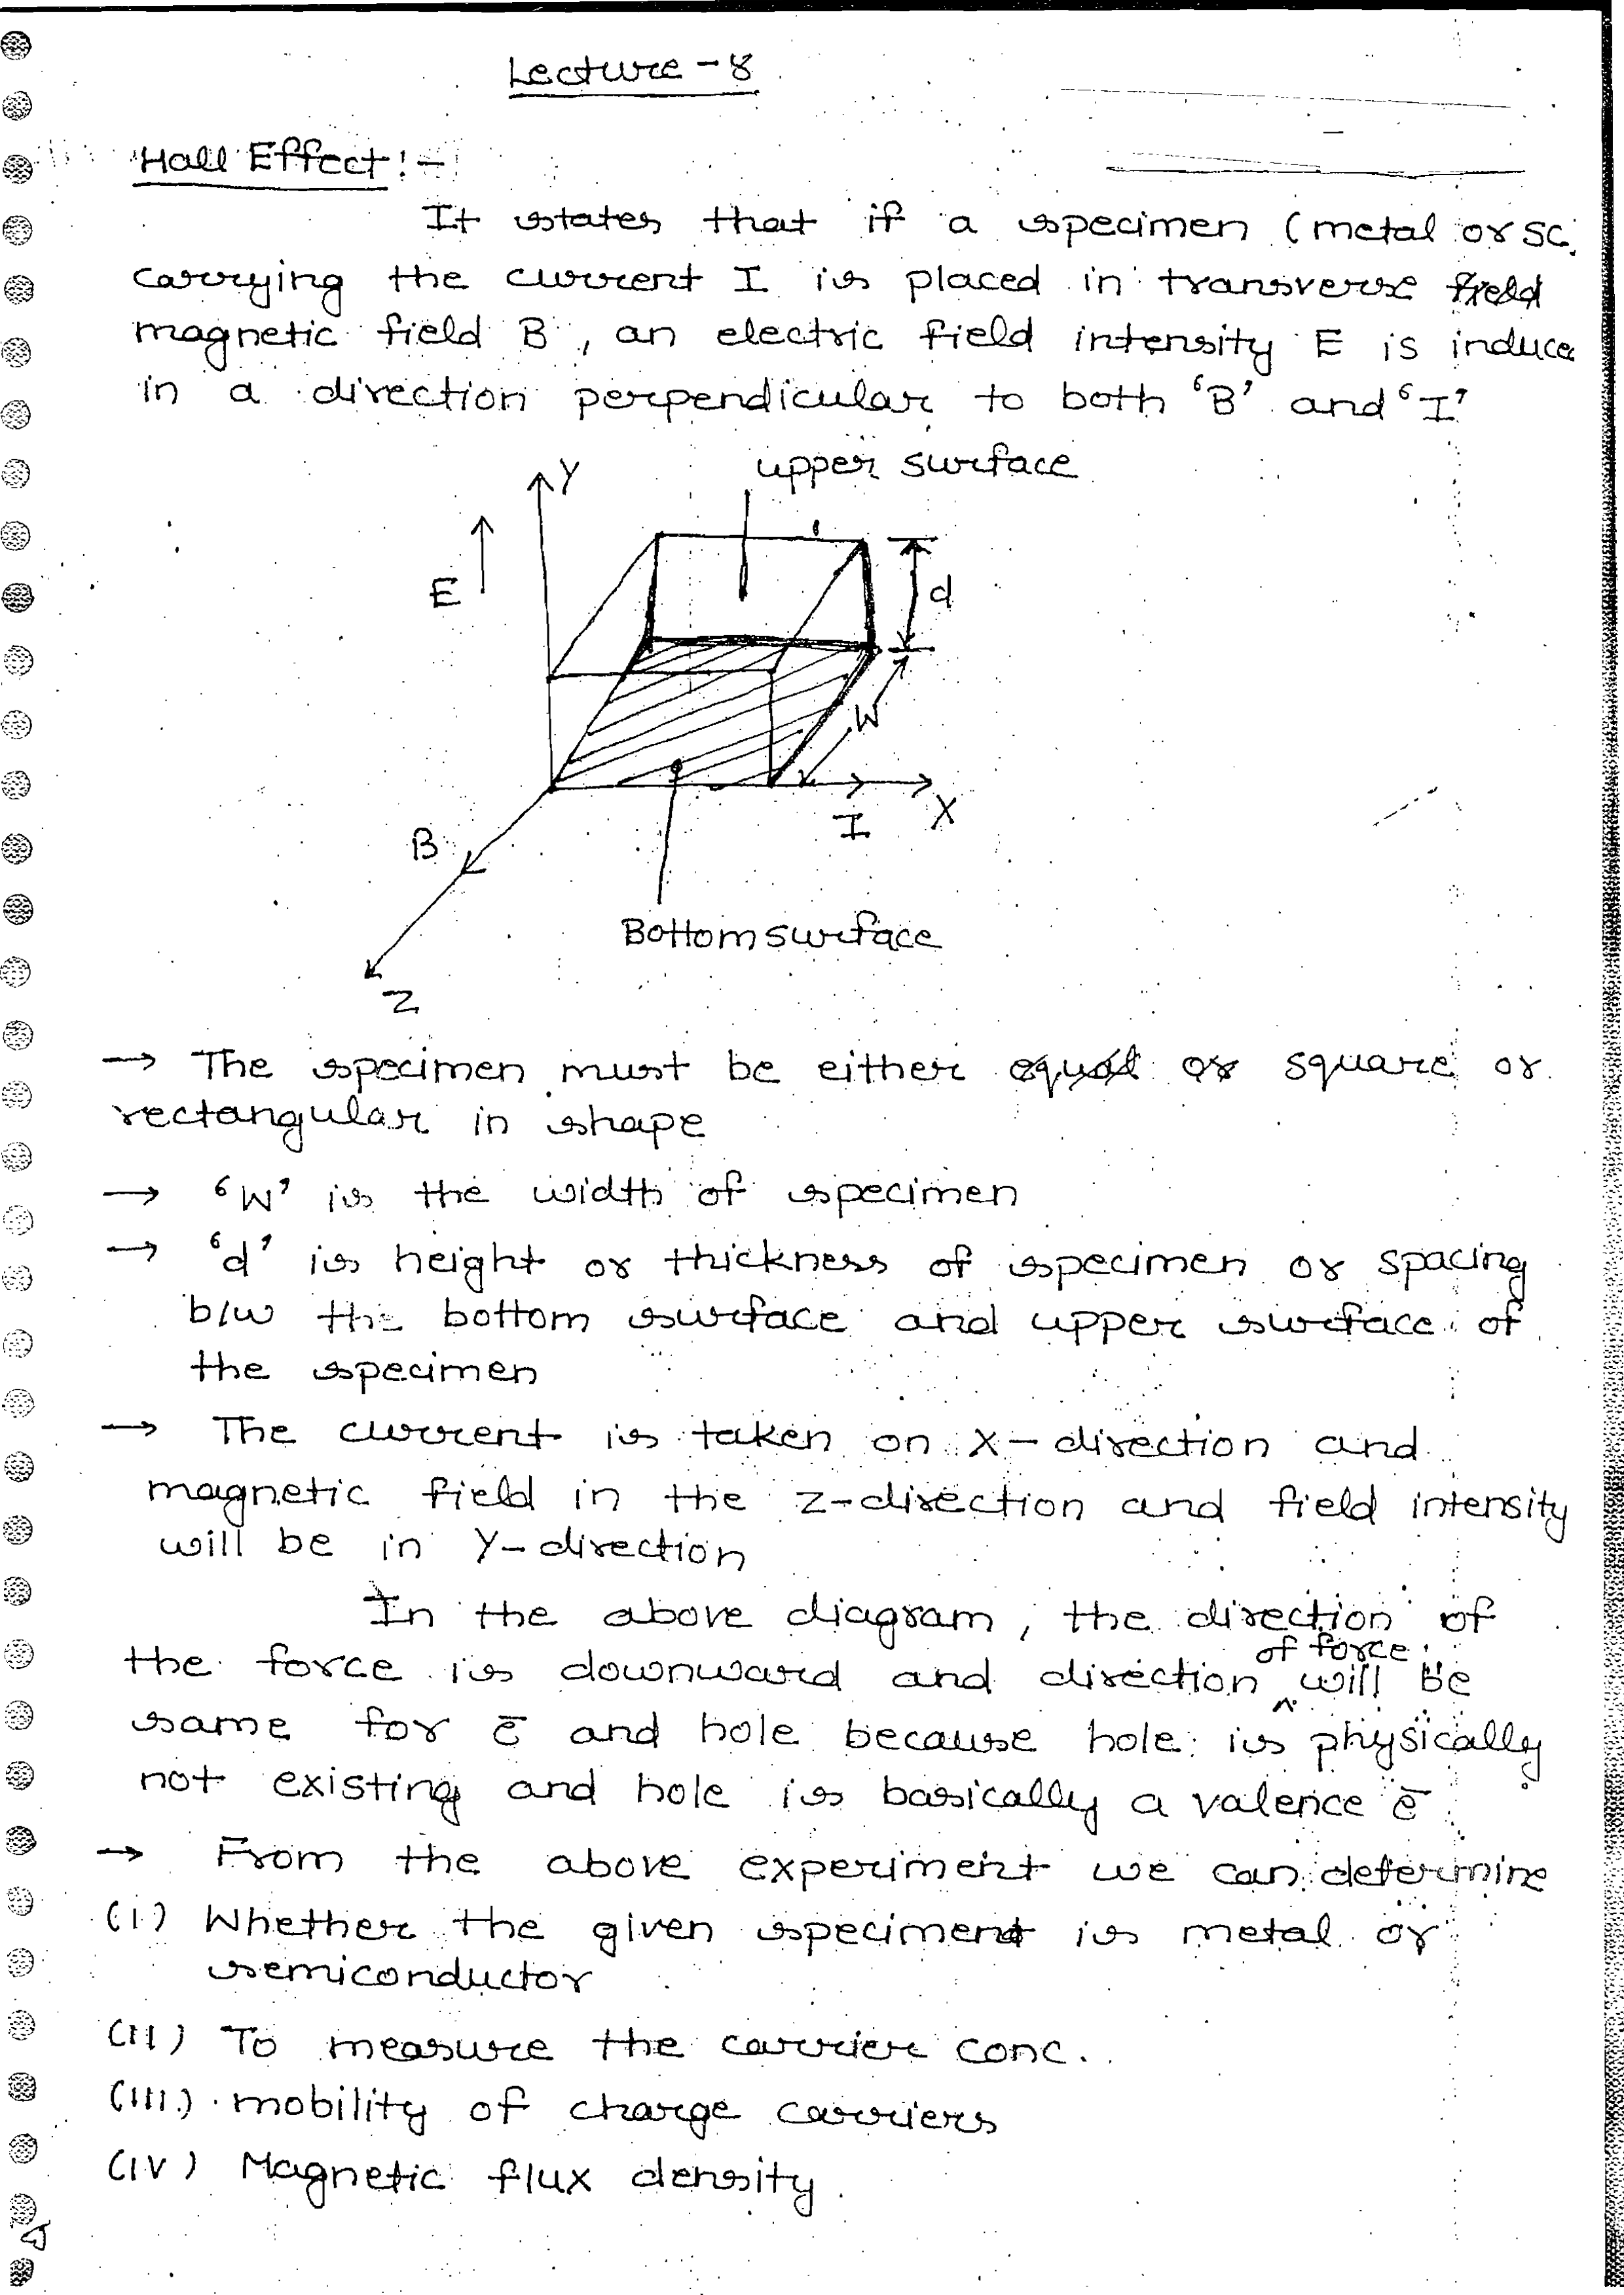 Lecture - 8
Hall Effect :-
It states that if a specimen (metal or SC
carrying the current I is placed in transverse field
magnetic field B, an electric field intensity E is induce
in a direction perpendicular to both 'B' and 'I'
upper surface
Y
E
d
W
I
X
B
Bottom surface
Z
→ The specimen must be either equal or square or
rectangular in shape
→ 'W' is the width of specimen
→ 'd' is height or thickness of specimen or spacing
b/w the bottom surface and upper surface of
the specimen
→ The current is taken on X-direction and
magnetic field in the Z-direction and field intensity
will be in Y-direction
In the above diagram, the direction of
the force is downward and direction of force will be
same for ē and hole because hole is physically
not existing and hole is basically a valence ē
→ From the above experiment we can determine
(i) Whether the given specimen is metal or
semiconductor
(ii) To measure the carrier conc.
(iii) mobility of charge carriers
(iv) Magnetic flux density.